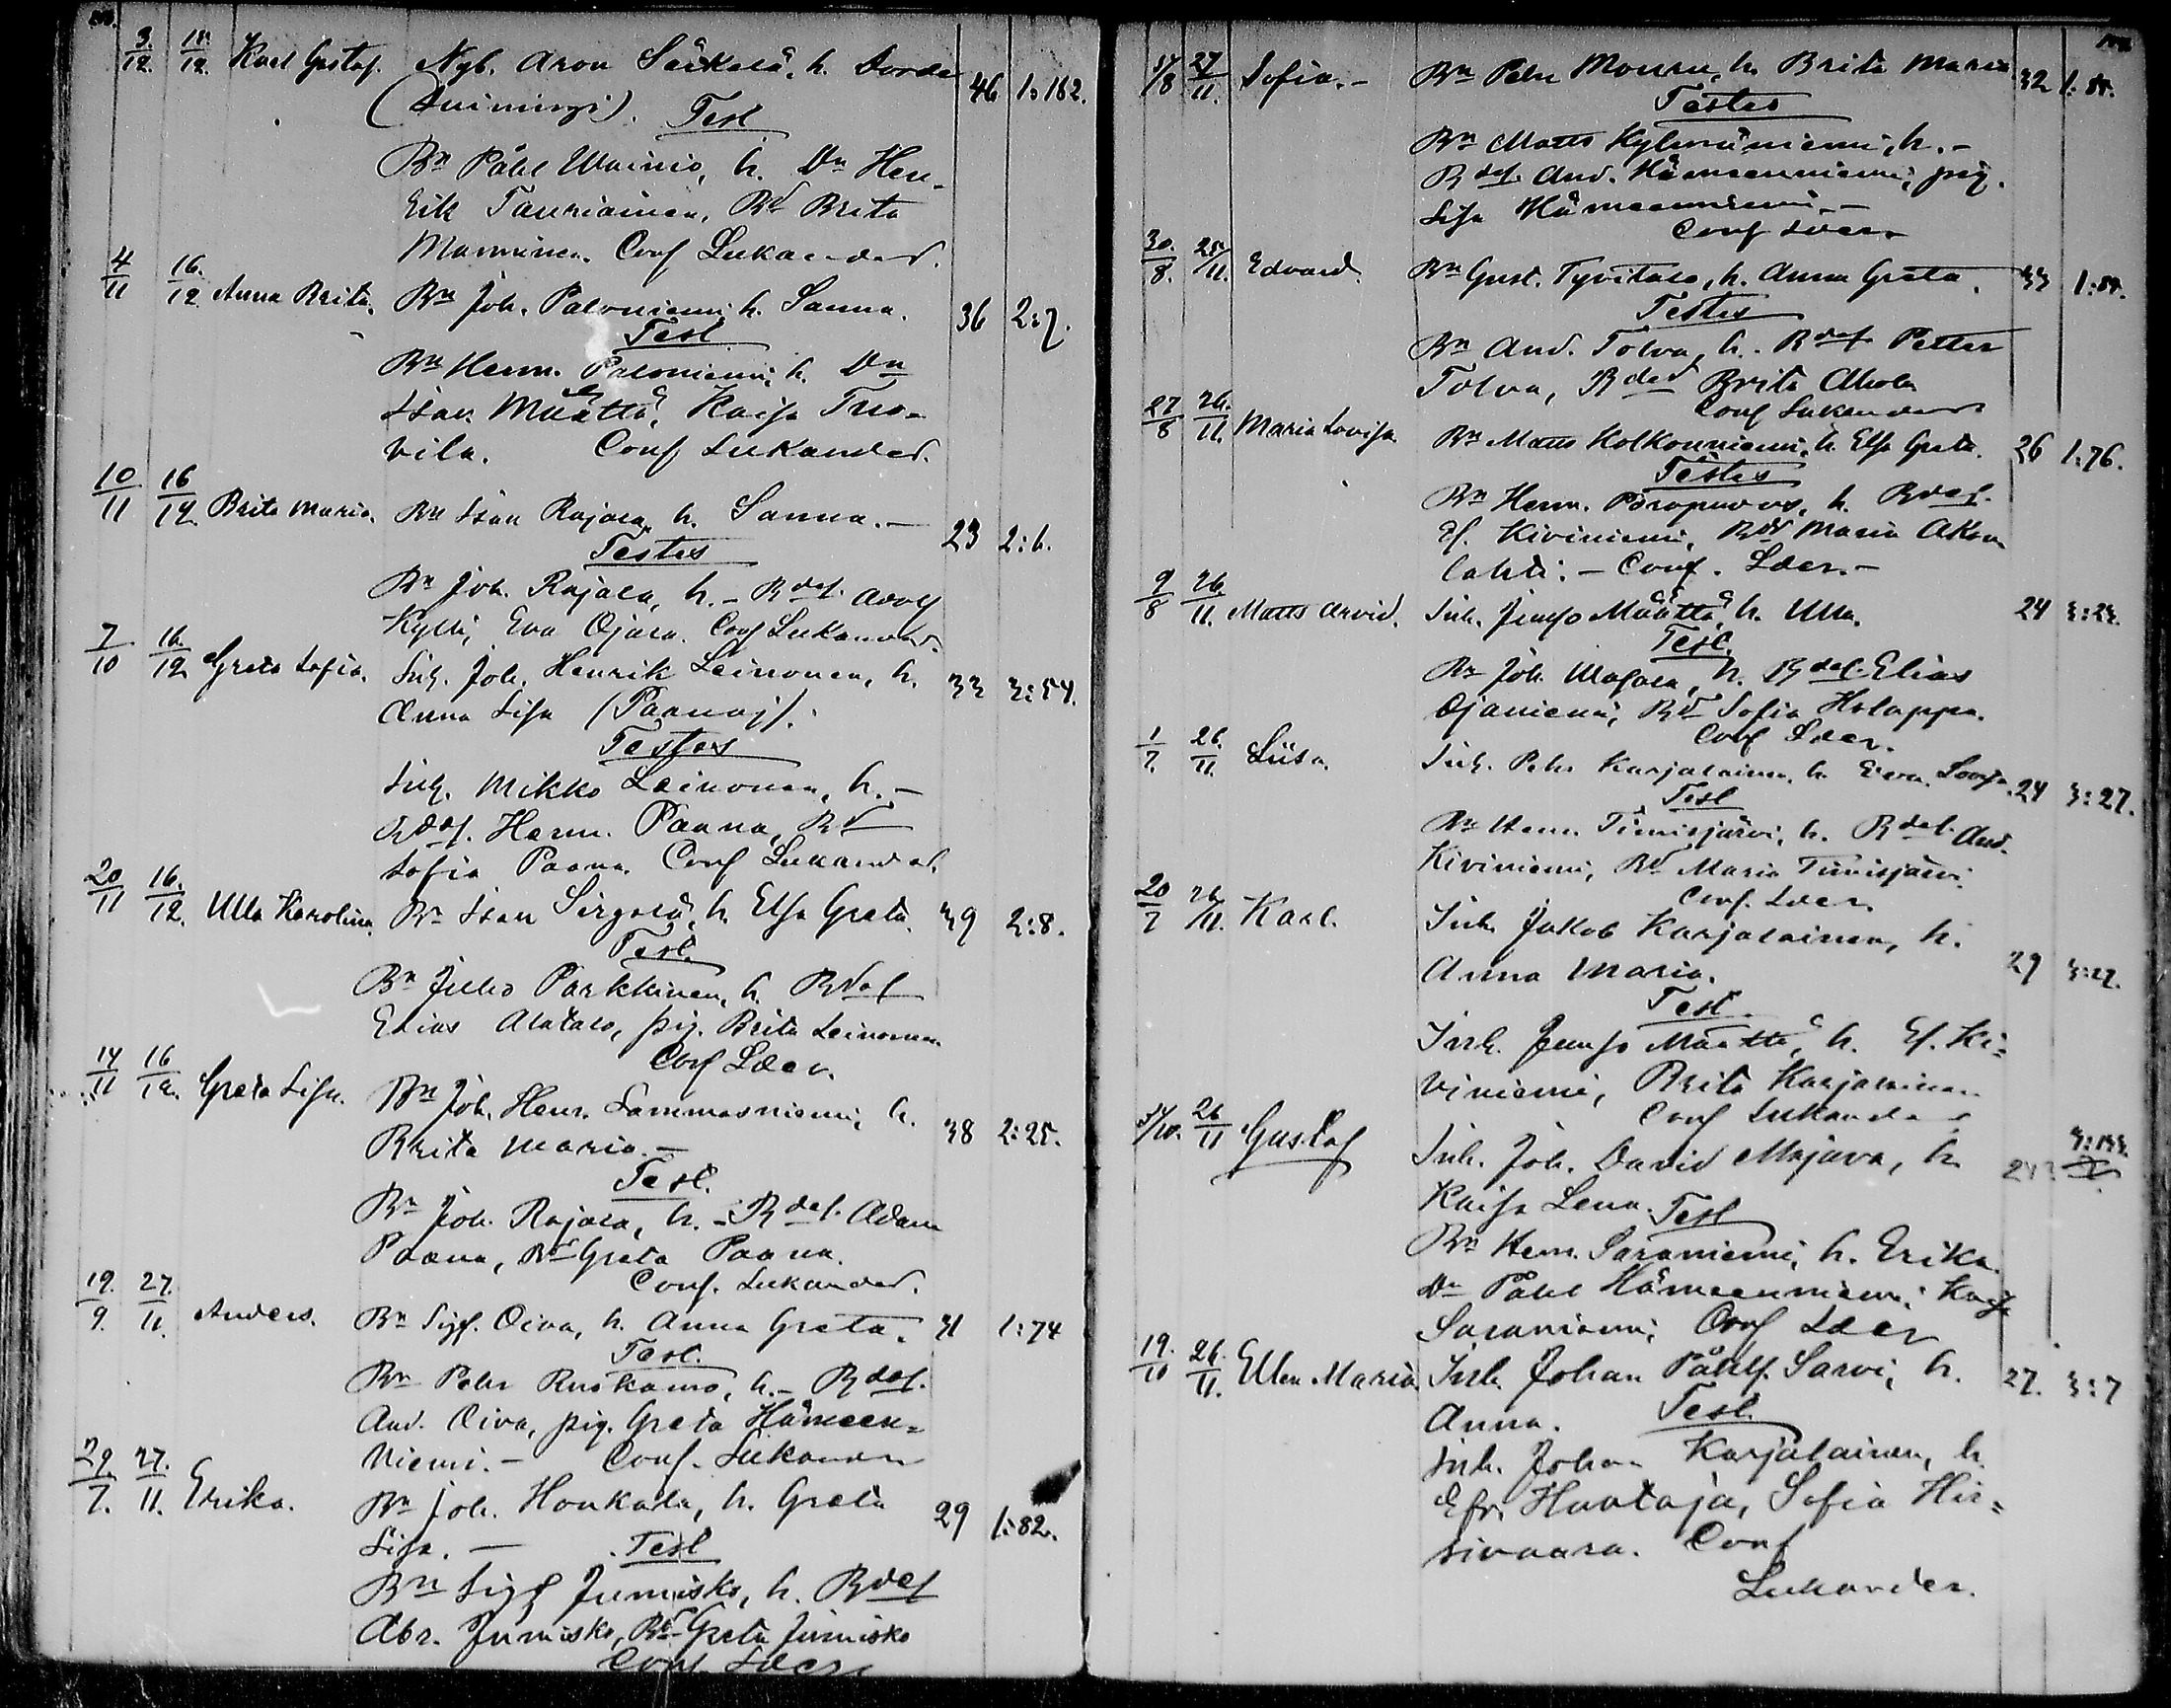 3/12. 18/12. Karl Gustaf. Nyb. Aron Särkelä, h. Dorde 46 1:182.
Test
Bn Påhl Wainio, h. Dn Hen-
rik Tauriainen, Bd Brita
Manninen. Conf Lukander.
4/11 16./12 Anna Brita. Bn Joh. Paloniemi h. Sanna. 36 2:7.
Test
Bn Herm. Paloniemi h. Dn
Isak Määttä, Kaisa Tuo-
vila. Conf Lukander.
10/11 16/12 Brita Maria. Bn Isak Rajala, h. Sanna. — 23 2:6.
Testes
Bn Joh. Rajala, h. — Bdes. Adolf
Kylli, Eva Ojala. Conf Lukander.
7/10 16./12 Greta Sofia. Inh. Joh. Henrik Leinonen, h. 33 3:54.
Anna Lisa (Paanaj).
Testes
Inh. Mikko Leinonen, h. —
Bdes. Herm. Paana, Bd
Sofia Paana. Conf Lukander.
20/11 16./12. Ulla Karolina. Bn Isak Sirgalä, h. Elsa Greta. 39 2:8.
Test.
Bn Juho Parkkinen, h. Bdes
Elias Alatalo, pig. Brita Leinonen
Conf Lder.
14/11 16/12. Greta Lisa. Bn Joh. Henr. Lammasniemi, h. 38 2:25.
Brita Maria. —
Test.
Bn Joh. Rajala, h. — Bdes. Adam
Paana, Bd Greta Paana.
Conf. Lukander.
19./9. 27./11. Anders. Bn Sigf. Oiva, h. Anna Greta. 31 1:74
Test.
Bn Pehr Ruokamo, h. — Bdes.
And. Oiva, pig. Greta Hämeen-
niemi. — Conf. Lukander
29./7. 27./11. Erika. Bn Joh. Honkala, h. Greta 29 1:82.
Lisa. — Test
Bn Sigf Jumisko, h. Bdes
Abr. Jumisko, Bd Greta Jumisko
Conf Lder
17/8 27/11. Sofia. — Bn Pehr Mouru, h. Brita Maria 32
Testes
Bn Matts Kylmäniemi, h. —
Bdes. And. Hämeenniemi, pig.
Lisa Hämeenniemi. —
Conf Lder.
30./8. 25/11. Edvard. Bn Gust. Tyvitalo, h. Anna Greta. 33
Testes
Bn And. Tolva, h. Bdes Petter
Tolva, Bded Brita Ahola
Conf Lukander
27/8 26./11. Maria Lovisa. Bn Matts Kolkonniemi, h. Elsa Greta. 26 1:76.
Testes
Bn Herm. Poropudas, h. Bdes.
Ef. Kiviniemi, Bd Maria Akon-
lahti. — Conf. Lder. —
9/8 26/11. Matts Arvid. Inh. Junso Määttä, h. Ulla. 24
Test.
Bn Joh. Majala, h. Bdes. Elias
Ojaniemi, Bd Sofia Holappa.
Conf Lder.
1/7. 26./11. Liisa. Inh. Pehr Karjalainen, h. Eva Lovisa. 24 3:27.
Test
Bn Henr. Timisjärvi, h. Bdes. And.
Kiviniemi, Bd Maria Timisjärvi.
Conf. Lder.
20/7 26/11. Karl. Inh. Jakob Karjalainen, h.
Anna Maria. 29 3:27.
Test.
Inh. Junso Määttä, h. Ef. Ki-
viniemi, Brita Karjalainen
Conf Lukander
26/11 Gustaf Inh. Joh. David Majava, h.
Kaisa Lena. Test
Bn Herm. Saraniemi, h. Erika.
Dn Påhl Hämeenniemi, Kaisa
Saraniemi, Conf Lder
19./10 26./11. Ellen Maria. Inh. Johan Påhlf. Sarvi, h. 27. 3:7
Anna. Test.
Inh. Johan Karjalainen, h.
Efr. Hautaja, Sofia Hir-
sivaara. Conf
Lukander.